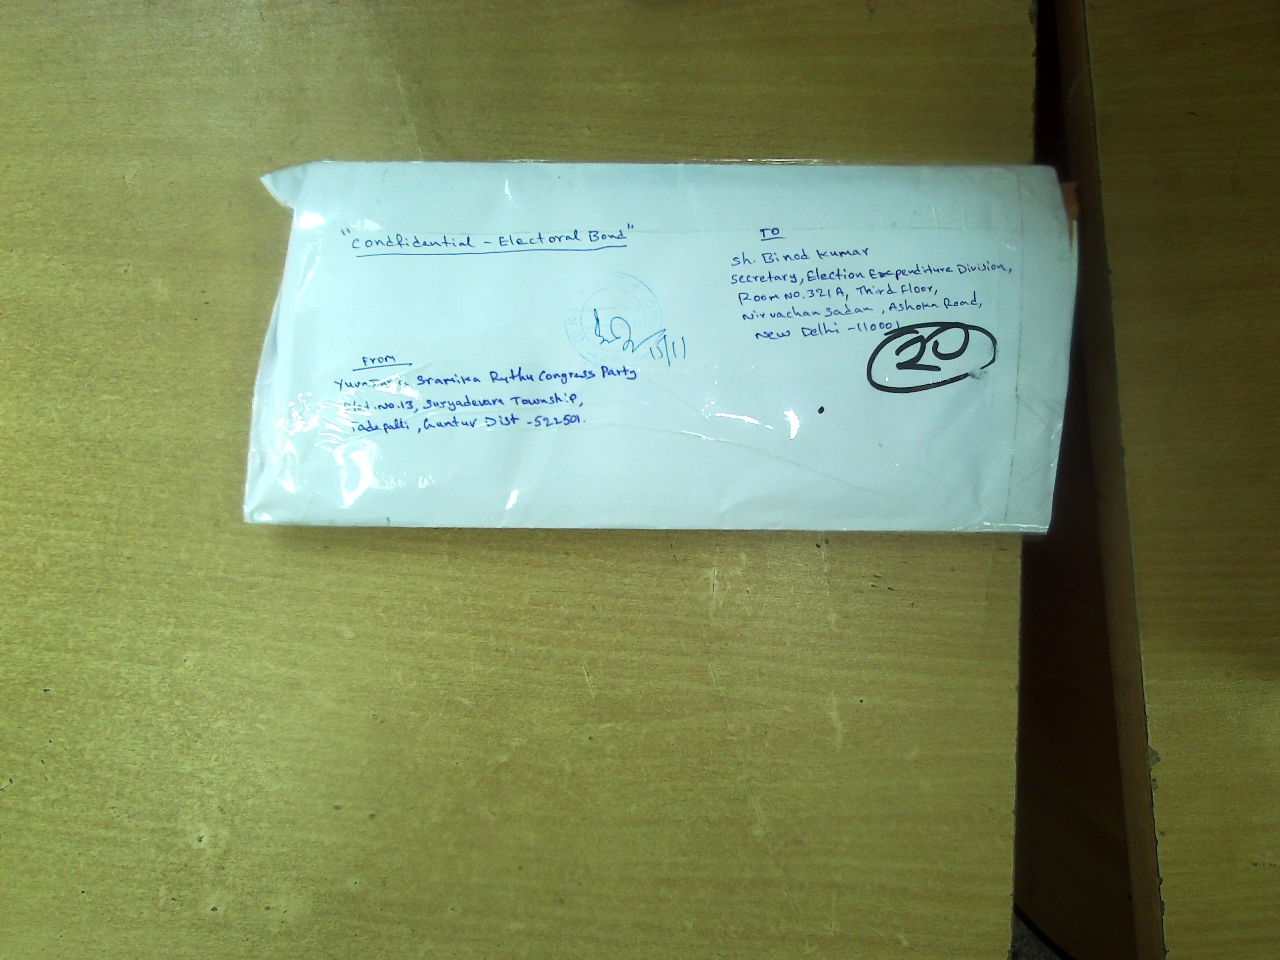 "Condfidential - Electoral Bond"
TO
Sh. Binod Kumar
Secretary, Election Expenditure Division,
Room No. 321A, Third Floor,
Nirvachan Sadan, Ashoka Road,
New Delhi - 110001
20
15/11
From
Sramika Rythu Congress Party
Plot.No.13, Suryadevara Township,
Tadepalli, Guntur Dist - 522501.